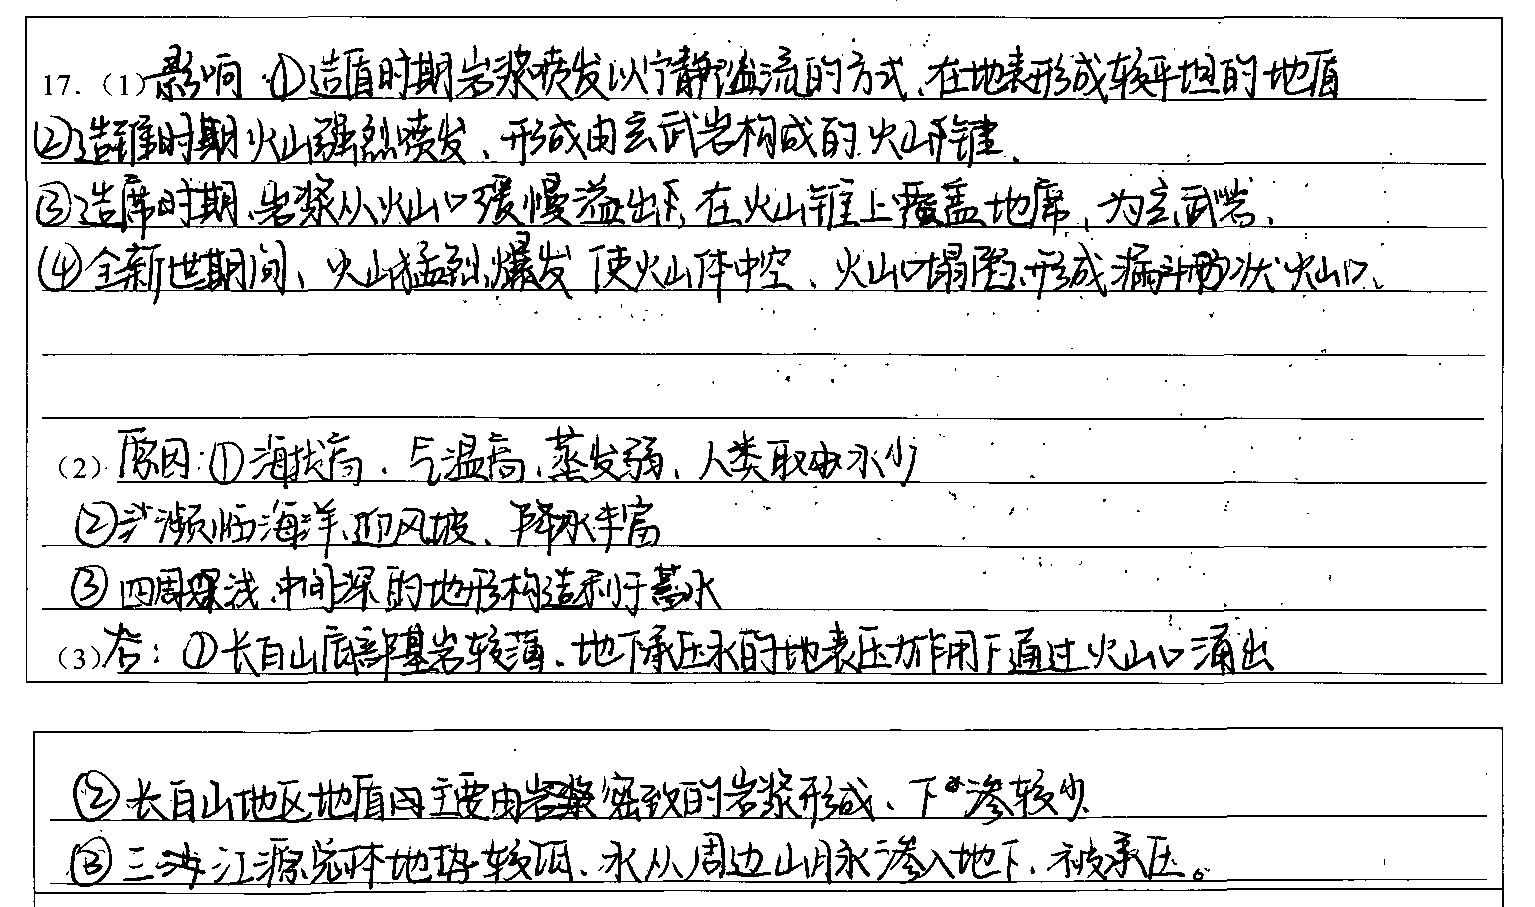 17.（1）影响①造盾时期岩浆喷发以宁静溢流的方式、在地表形成较平坦的地盾
②造锥时期火山强烈喷发、形成由玄武岩构成的火山锥、
③造席时期、岩浆从火山口缓慢溢出下，在火山锥上覆盖地席，为玄武岩、
④全新世期间、火山猛烈爆发 使火山体中空、火山口塌陷、形成漏斗形状火山口、
（2）原因:①海拔高、气温高、蒸发弱、人类取水少
②濒临海洋、迎风坡、降水丰富
③四周浅、中间深的地形构造利于蓄水
（3）答：①长白山底部基岩较薄、地下承压水的地表压力作用下通过火山口涌出
②长白山地区地盾主要由密致的岩浆形成、下渗较少
③三江源总体地势较低、水从周边山脉渗入地下、被承压。